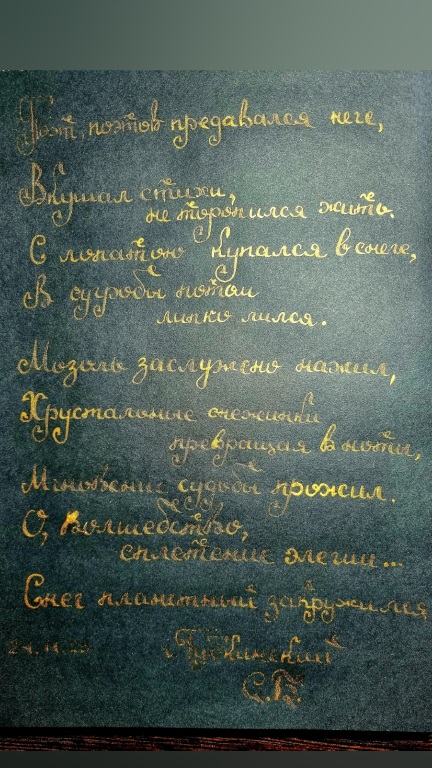 Поэт, поэтов предавался неге,
Вкушал стихи,
не торопился жить.
С лопатою купался в снеге,
В сугробы потом
липко лился.
Мозоль заслужено нажил,
Хрустальные снежинки
превращая в ноты,
Мгновение судьбы прожил.
О, Волшебство,
сплетение элегии...
Снег планетный запружился
24.11.
С.В.